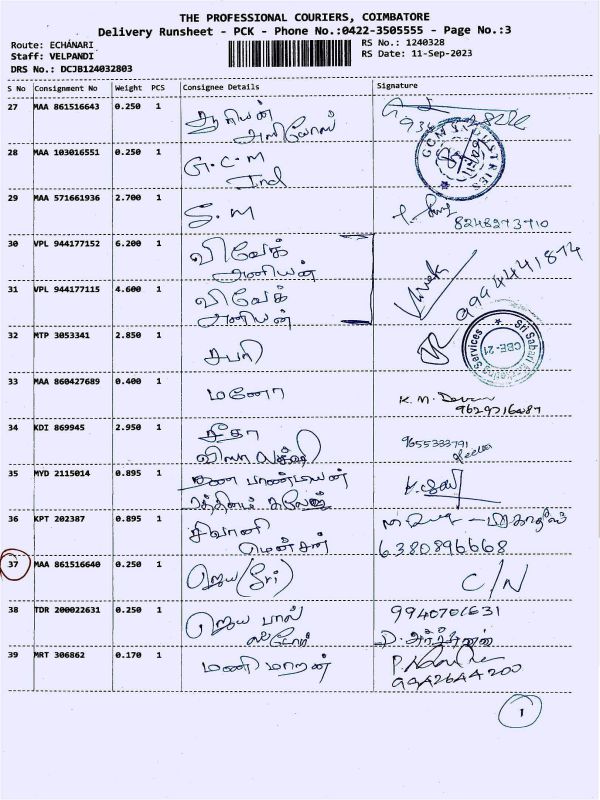 THE PROFESSIONAL COURIERS, COIMBATORE
Delivery Runsheet - PCK - Phone No.:0422-3505555 - Page No.:3
Route: ECHANARI
Staff: VELPANDI
DRS No.: DCJB124032803
RS No.: 1240328
RS Date: 11-Sep-2023
S No Consignment No Weight PCS Consignee Details Signature
27 MAA 861516643 0.250 1
28 MAA 103016551 0.250 1 G.C.M
Ind
29 MAA 571661936 2.700 1 S.M
8248273710
30 VPL 944177152 6.200 1 விவேக்
அனியன்
31 VPL 944177115 4.600 1 விவேக்
அனியன்
Vivek
9994441874
32 MTP 3053341 2.850 1 சபரி
Sri Sabari Services CBE-21
33 MAA 860427689 0.400 1 மனோ K.M.
34 KDI 869945 2.950 1 கீதா
9655333791
35 MYD 2115014 0.895 1
36 KPT 202387 0.895 1 சிவானி
மென்சன்
6380896668
37 MAA 861516640 0.250 1 ஜெய (Sri) C/N
38 TDR 200022631 0.250 1 ஜெய பால் 9940701631
39 MRT 306862 0.170 1 மணி மாறன்
9942644200
1